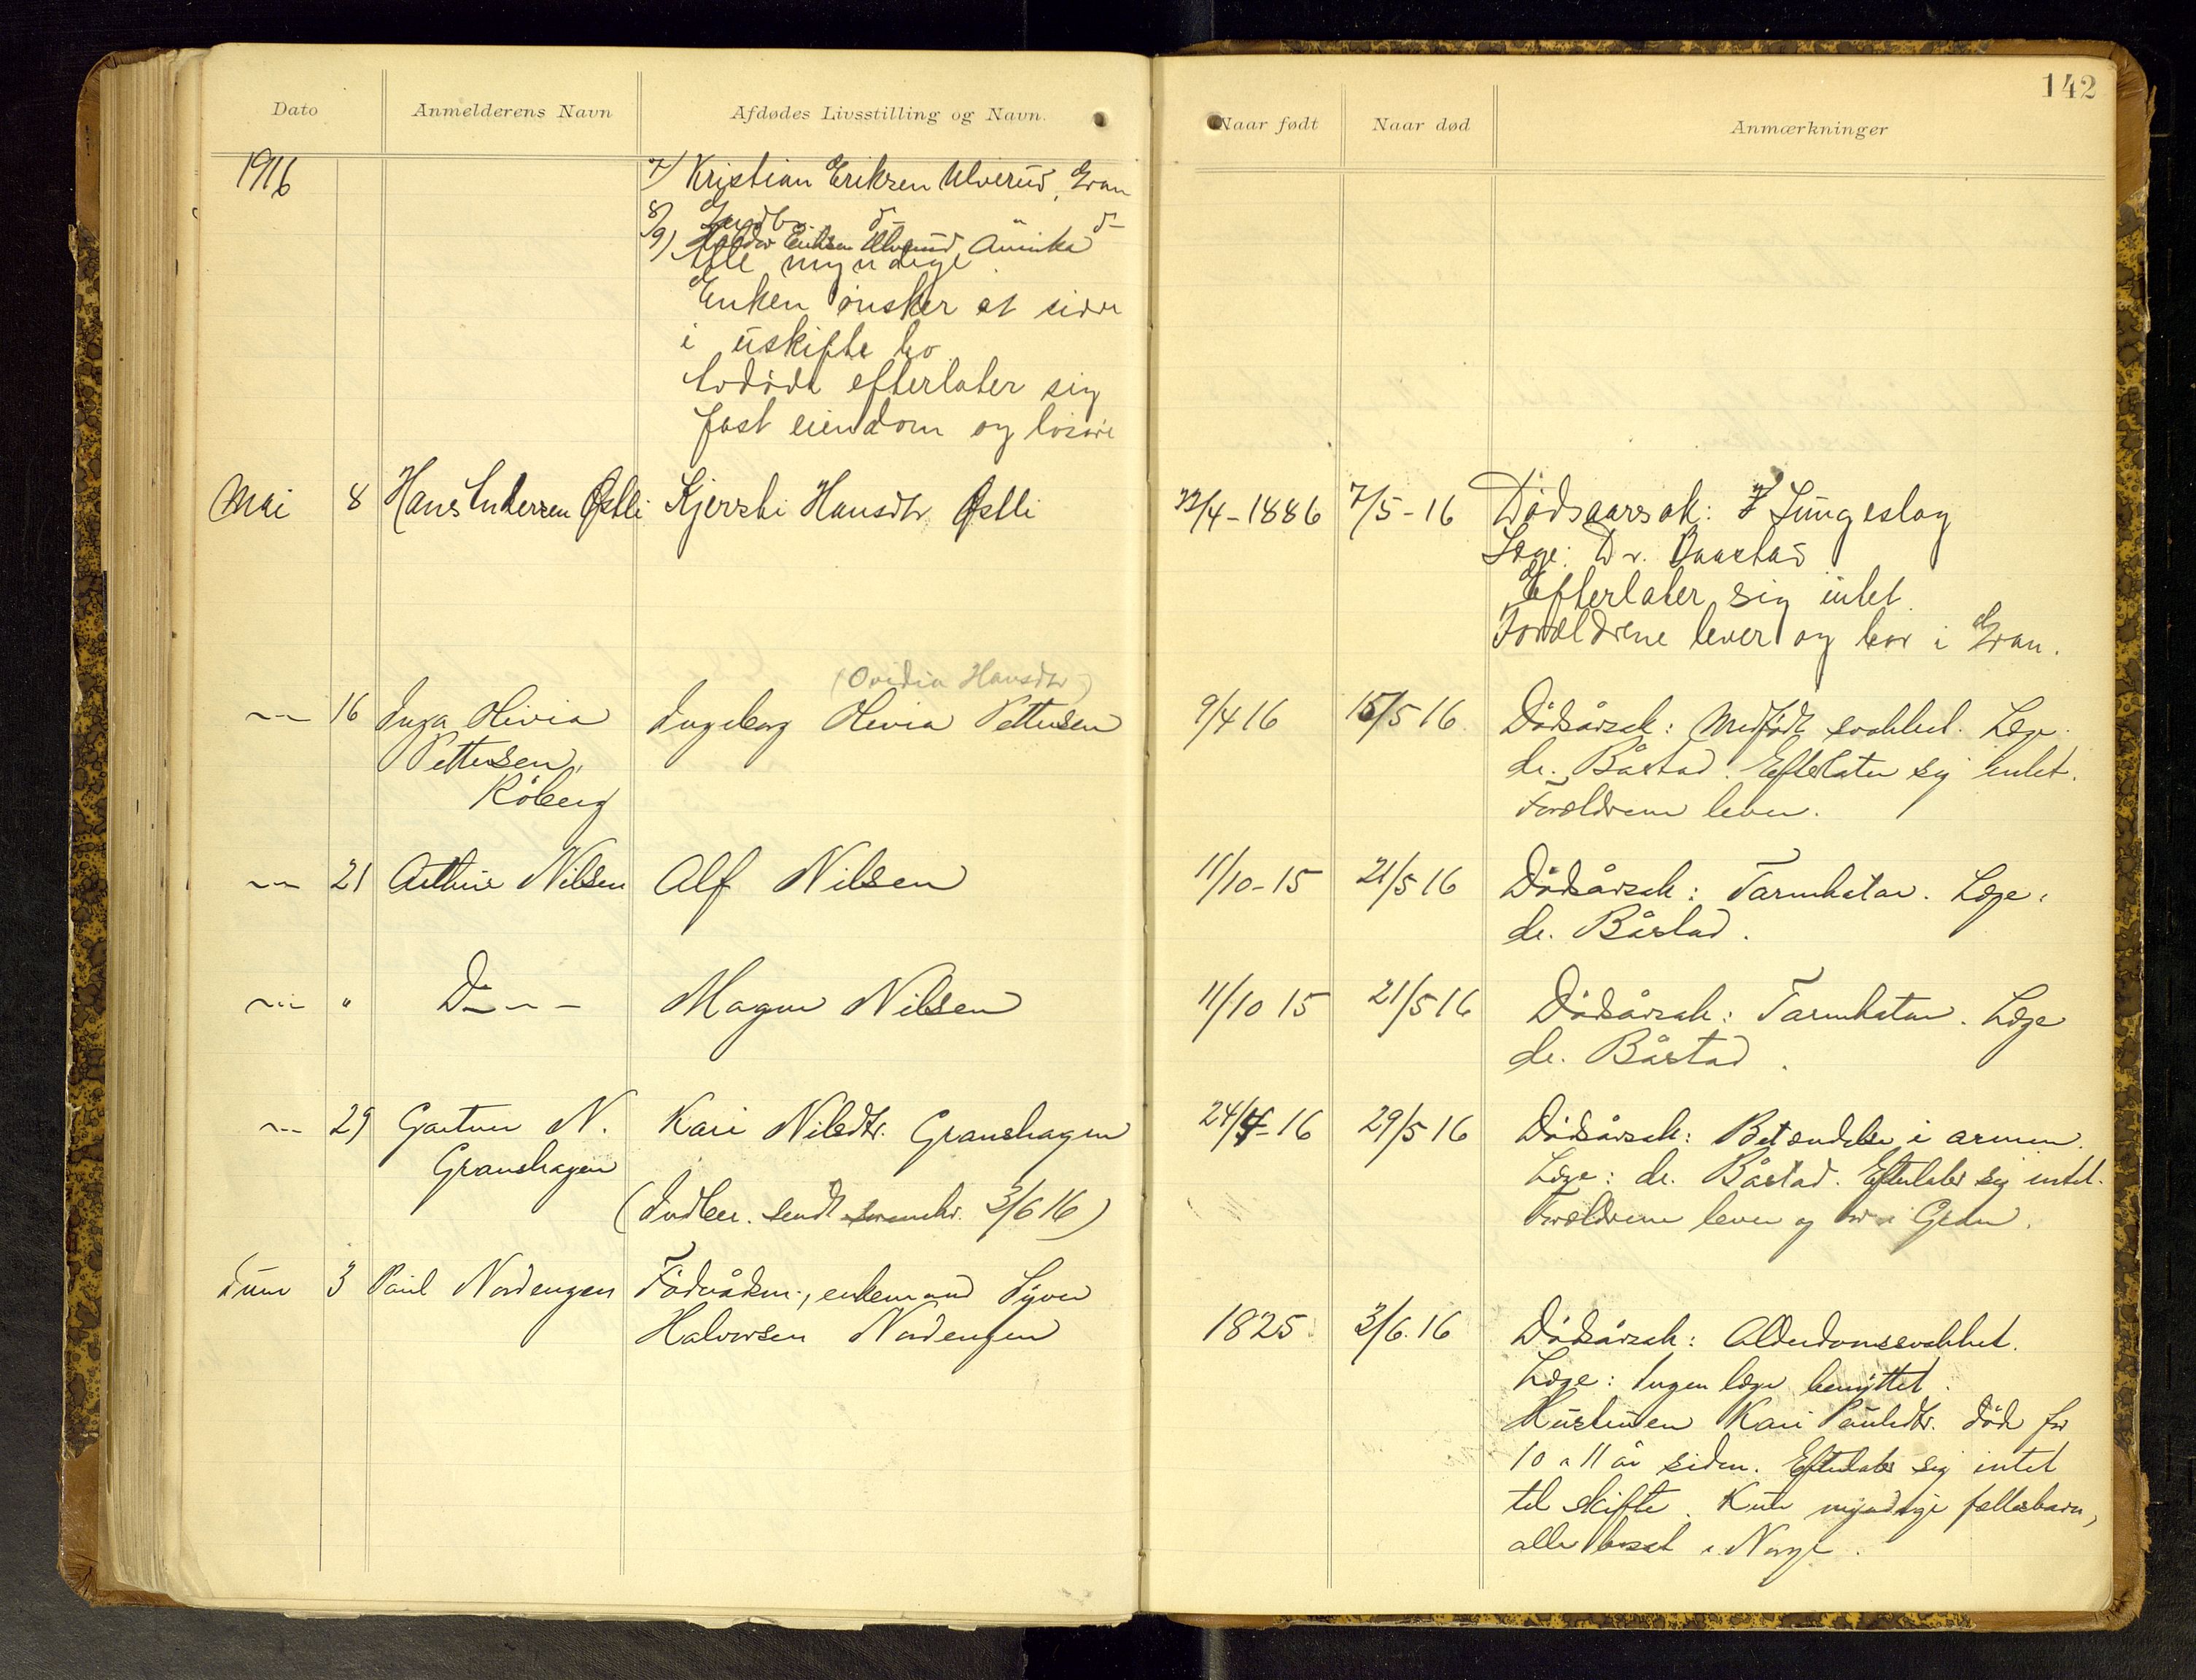 142
Dato Anmelderens Navn Afdødes Livsstilling og Navn. Naar født Naar død Anmærkninger
1916
7) Kristian Eriksen Ulverud, Gran
8) d- d-
9) Eriksen Ulverud Amerika
Alle myndige
Enken ønsker at sidde
i uskifte bo
Avdøde efterlater sig
fast eiendom og løsøre
Mai 8 Hans Andersen Østli Kjersti Hansdtr. Østli 22/4-1886 7/5-16 Dødsaarsak: Lungeslag
Læge: Dr. Baastad
Efterlater sig intet.
Forældrene lever og bor i Gran.
(Ovidia Hansdtr)
-"- 16 Inga Olivia Ingeborg Olivia Pettersen 9/4 16 15/5 16 Dødsårsak: Medfødt svakhet. Læge.
Pettersen, dr. Båstad. Efterlater sig intet.
Røberg Forældrene lever.
-"- 21 Arthur Nilsen Alf Nilsen 11/10-15 21/5 16 Dødsårsak: Tarmkatar. Læge:
dr. Båstad.
-"- " Do - - Magne Nilsen 11/10 15 21/5 16 Dødsårsak: Tarmkatar. Læge
dr. Båstad.
-"- 29 Gartner N. Kari Nilsdtr. Granshagen 24/4-16 29/5 16 Dødsårsak: Betændelse i armen.
Granshagen Læge: dr. Båstad. Efterlater sig intet.
(Indber. sendt 3/6 16) Forældrene lever og bor i Gran.
Juni 3 Paul Nordengen Föderådsm., enkemand Syver
Halvorsen Nordengen 1825 3/6.16 Dødsårsak: Alderdomssvakhet.
Læge: Ingen læge benyttet.
Hustruen Kari Paulsdtr. døde for
10 a 11 år siden. Efterlater sig intet
til skifte. Kun myndige fællesbarn,
alle bosat i Norge.